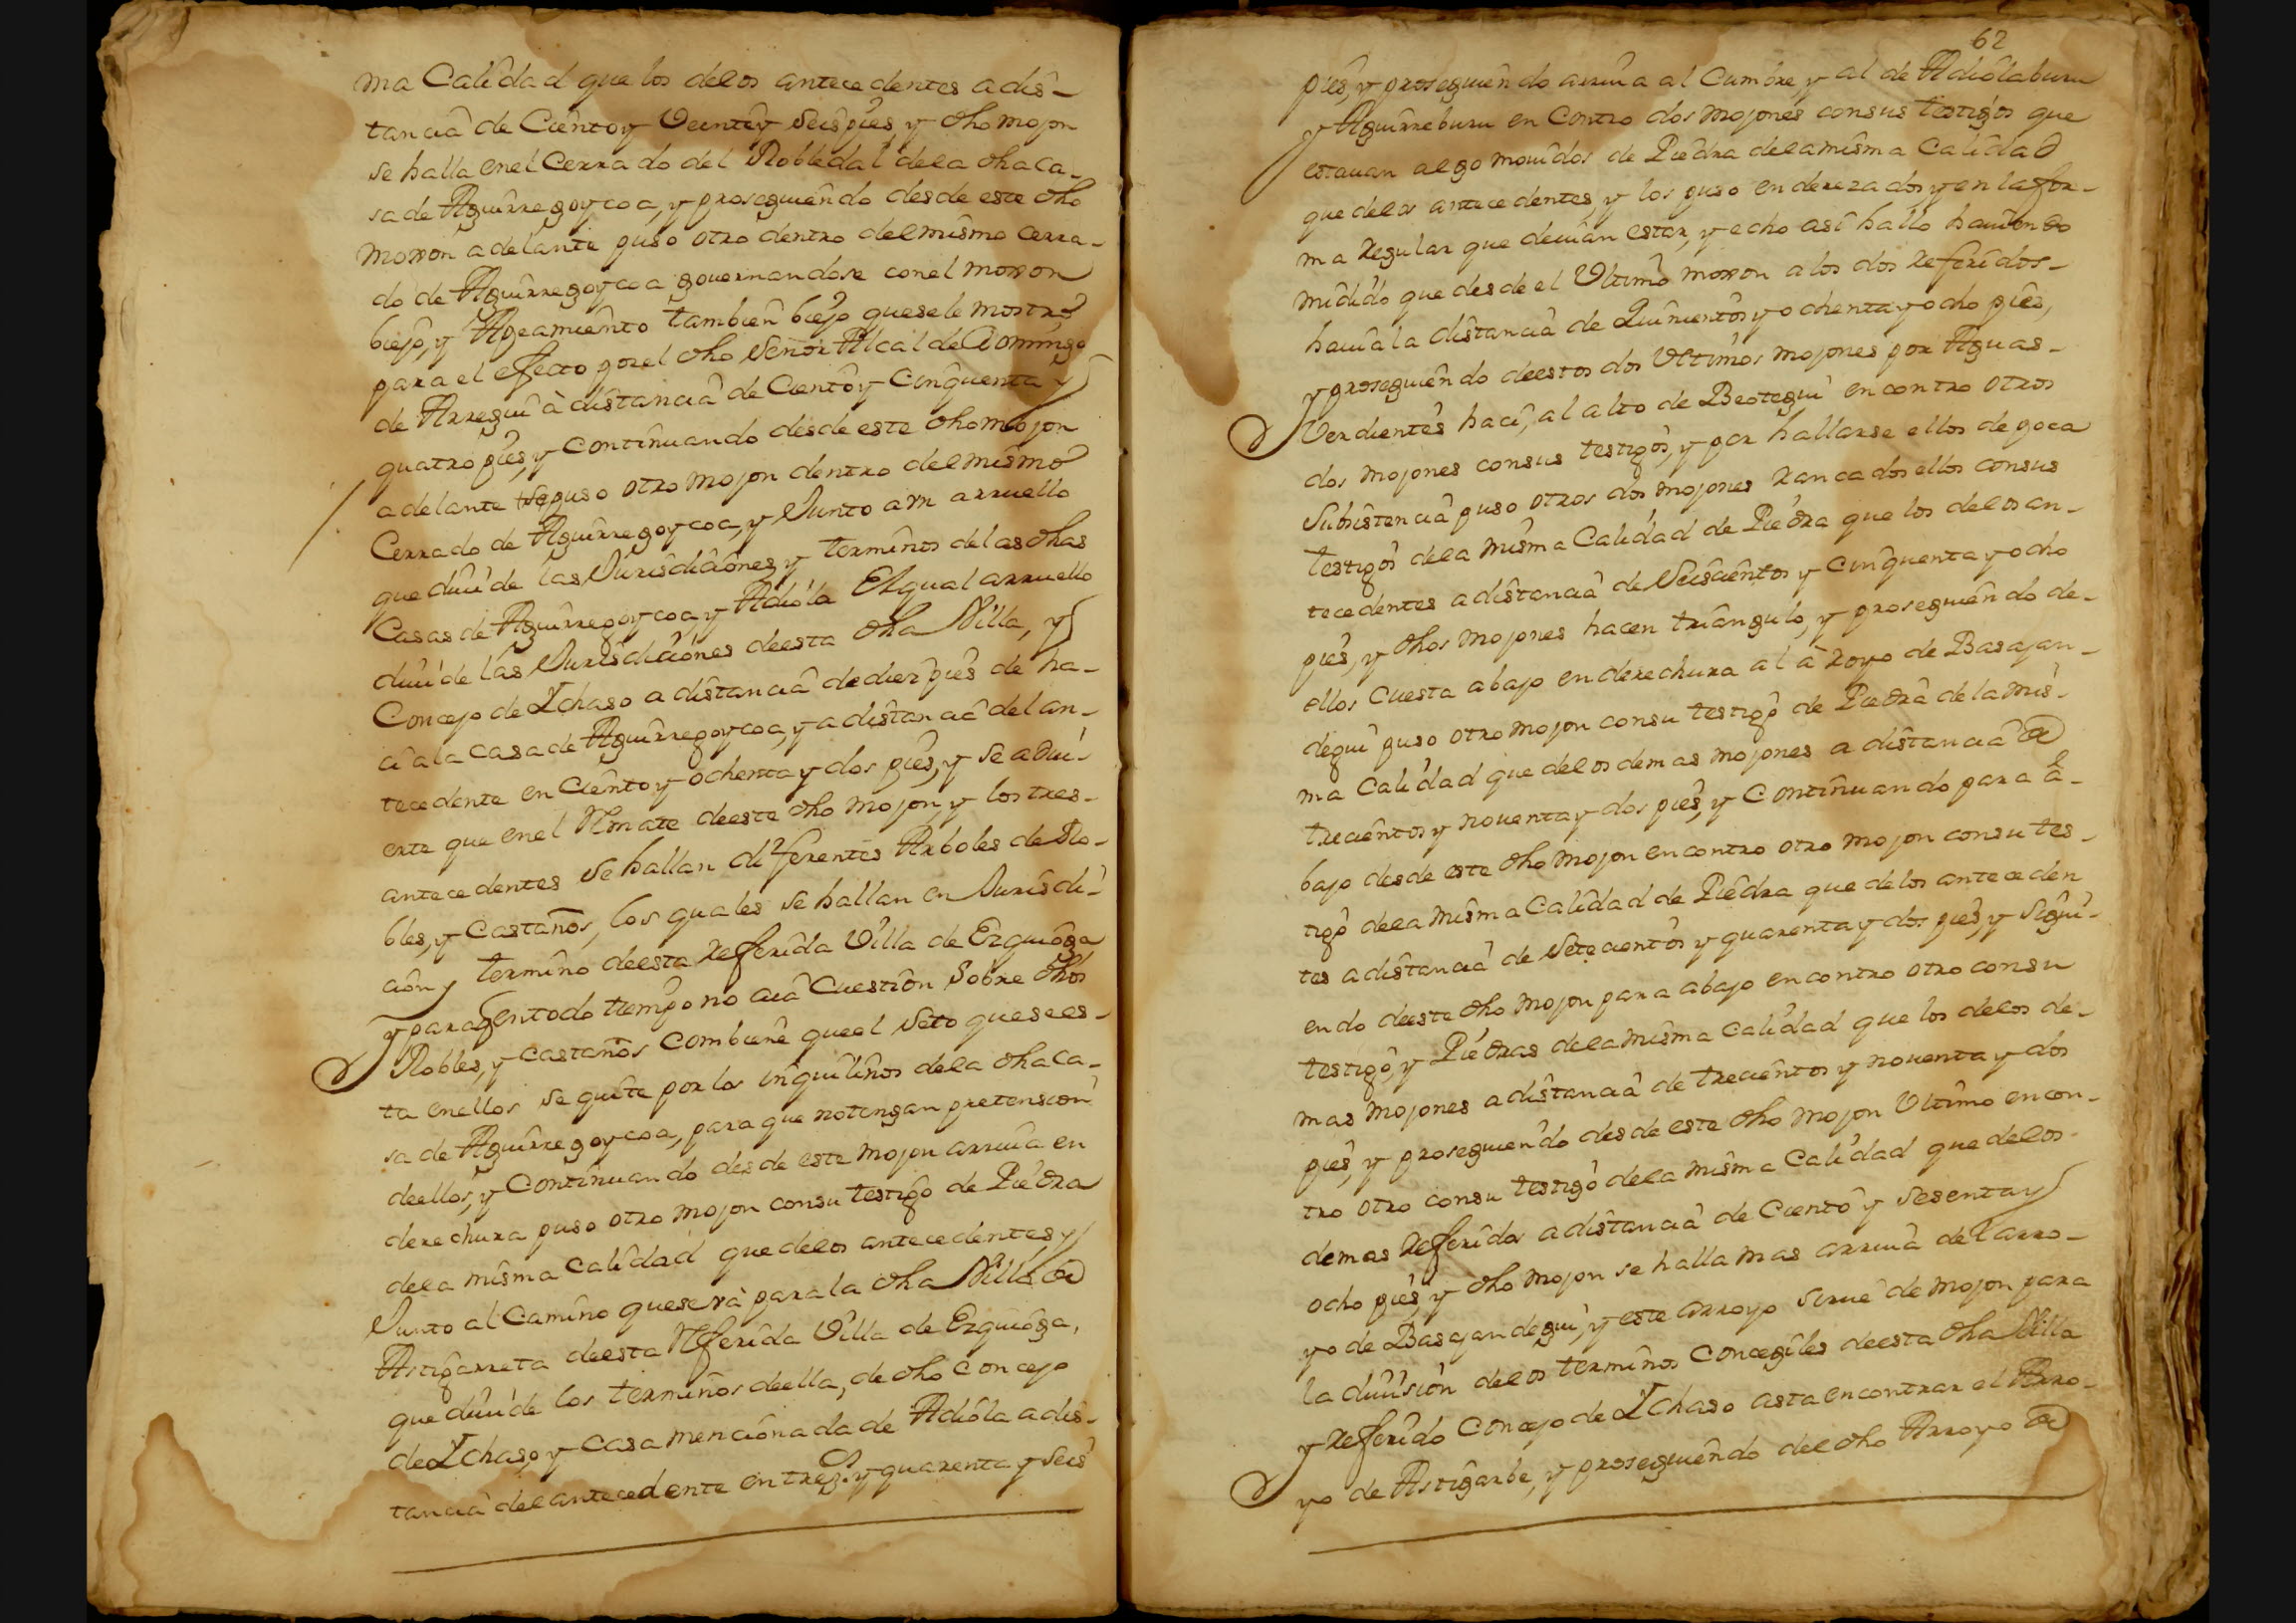 ma Calidad que los delos antecedentes a dis-
tancia de Ciento y Veinte y Seis pies, y dho mojon
se halla enel Cerrado del Robledal dela dha ca-
sa de Aguirregoycoa, y prosiguiendo desde este dho
moxon adelante puso otro dentro delmismo cerra-
do de Aguirregoycoa governandose conel moxon
biejo, y Apeamiento tambien biejo quesele mostro
para el efecto porel dho Señor Alcalde Domingo
de Arregui à distancia de Ciento y Cinquenta y
quatro pies, y continuando desde este dho mojon
adelante se puso otro mojon dentro delmismo
Cerrado de Aguirregoycoa, y Junto a vn arruello
que diuide las Jurisdiciones, y terminos delas dhas
Casas de Aguirregoycoa y Adiola El qual arruello
diuide las Jurisdiciones deesta dha Villa, y
Concejo de Ychaso a distancia de diez pies de ha-
cia la casa de Aguirregoycoa, y a distancia del an-
tecedente en Ciento y ochenta y dos pies, y se adui-
erte que enel Remate deeste dho mojon, y los tres-
antecedentes se hallan diferentes Arboles de Ro-
bles, y Castaños, los quales se hallan en Jurisdi-
cion y termino deesta referida Villa de Ezquioga
y para q entodo tiempo no aia Cuestion Sobre dhos
Robles, y castaños combiene queel Seto quesees-
ta enellos se quite por los inquilinos dela dha ca-
sa de Aguirregoycoa, para que notengan pretension
deellos, y Continuando desde este mojon arriua en
derechura puso otro mojon consu testigo de Piedra
dela misma Calidad que delos antecedentes y
Junto al Camino que se va para la dha Villa de
Astigarreta deesta Referida Villa de Ezquioga,
que diuide los terminos deella, de dho Concejo
de Ychaso, y casa mencionada de Adiola a dis-
tancia del antecedente en trez.s y quarenta y seis
62
pies, y prosiguiendo arriua al Cumbre, y al de Adiolaburu
y Aguirreburu encontro dos mojones consus testigos que
estauan algo mouidos de Piedra delamisma Calidad
que delos antecedentes, y los puso enderezados y en la for-
ma regular que deuian estar, y echo asi hallo hauiendo
midido que desde el Vltimo moxon a los dos referidos-
hauia la distancia de Quinientos y ochenta y ocho pies,
y prosiguiendo deestos dos Vltimos mojones por Aguas-
Verdientes haci, al alto de Beotegui encontro otros
dos mojones consus testigos, y por hallarse ellos de poca
Subsistencia puso otros dos mojones rancados ellos consus
testigos dela misma Calidad de Piedra que los delos an-
tecedentes a distancia de Seiscientos y cinquenta y ocho
pies, y dhos mojones hacen triangulo, y prosiguiendo de-
ellos Cuesta abajo en derechura al à royo de Basajan-
degui puso otro mojon consu testigo de Piedra de la mis-
ma Calidad que delos demas mojones a distancia de
trecientos y nouenta y dos pies, y Continuando para a-
bajo desde este dho mojon encontro otro mojon consu tes-
tigo dela misma Calidad de Piedra que delos anteceden
tes a distancia de Setecientos y quarenta y dos pies, y sigui-
endo deeste dho mojon para abajo encontro otro consu
testigo, y Piedras dela misma calidad que los delos de-
mas mojones a distancia de trecientos y nouenta y dos
pies, y prosiguiendo desde este dho mojon Vltimo encon-
tro otro consu testigo dela misma Calidad que delos
demas referidos a distancia de Ciento y sesenta y
ocho pies, y dho mojon se halla mas arriua del arro-
yo de Basajandegui, y este arroyo sirue de mojon para
la diuision delos terminos Concegiles deesta dha Villa
y referido Concejo de Ychaso asta encontrar el Arro-
yo de Astigarbe, y prosiguiendo del dho Arroyo de